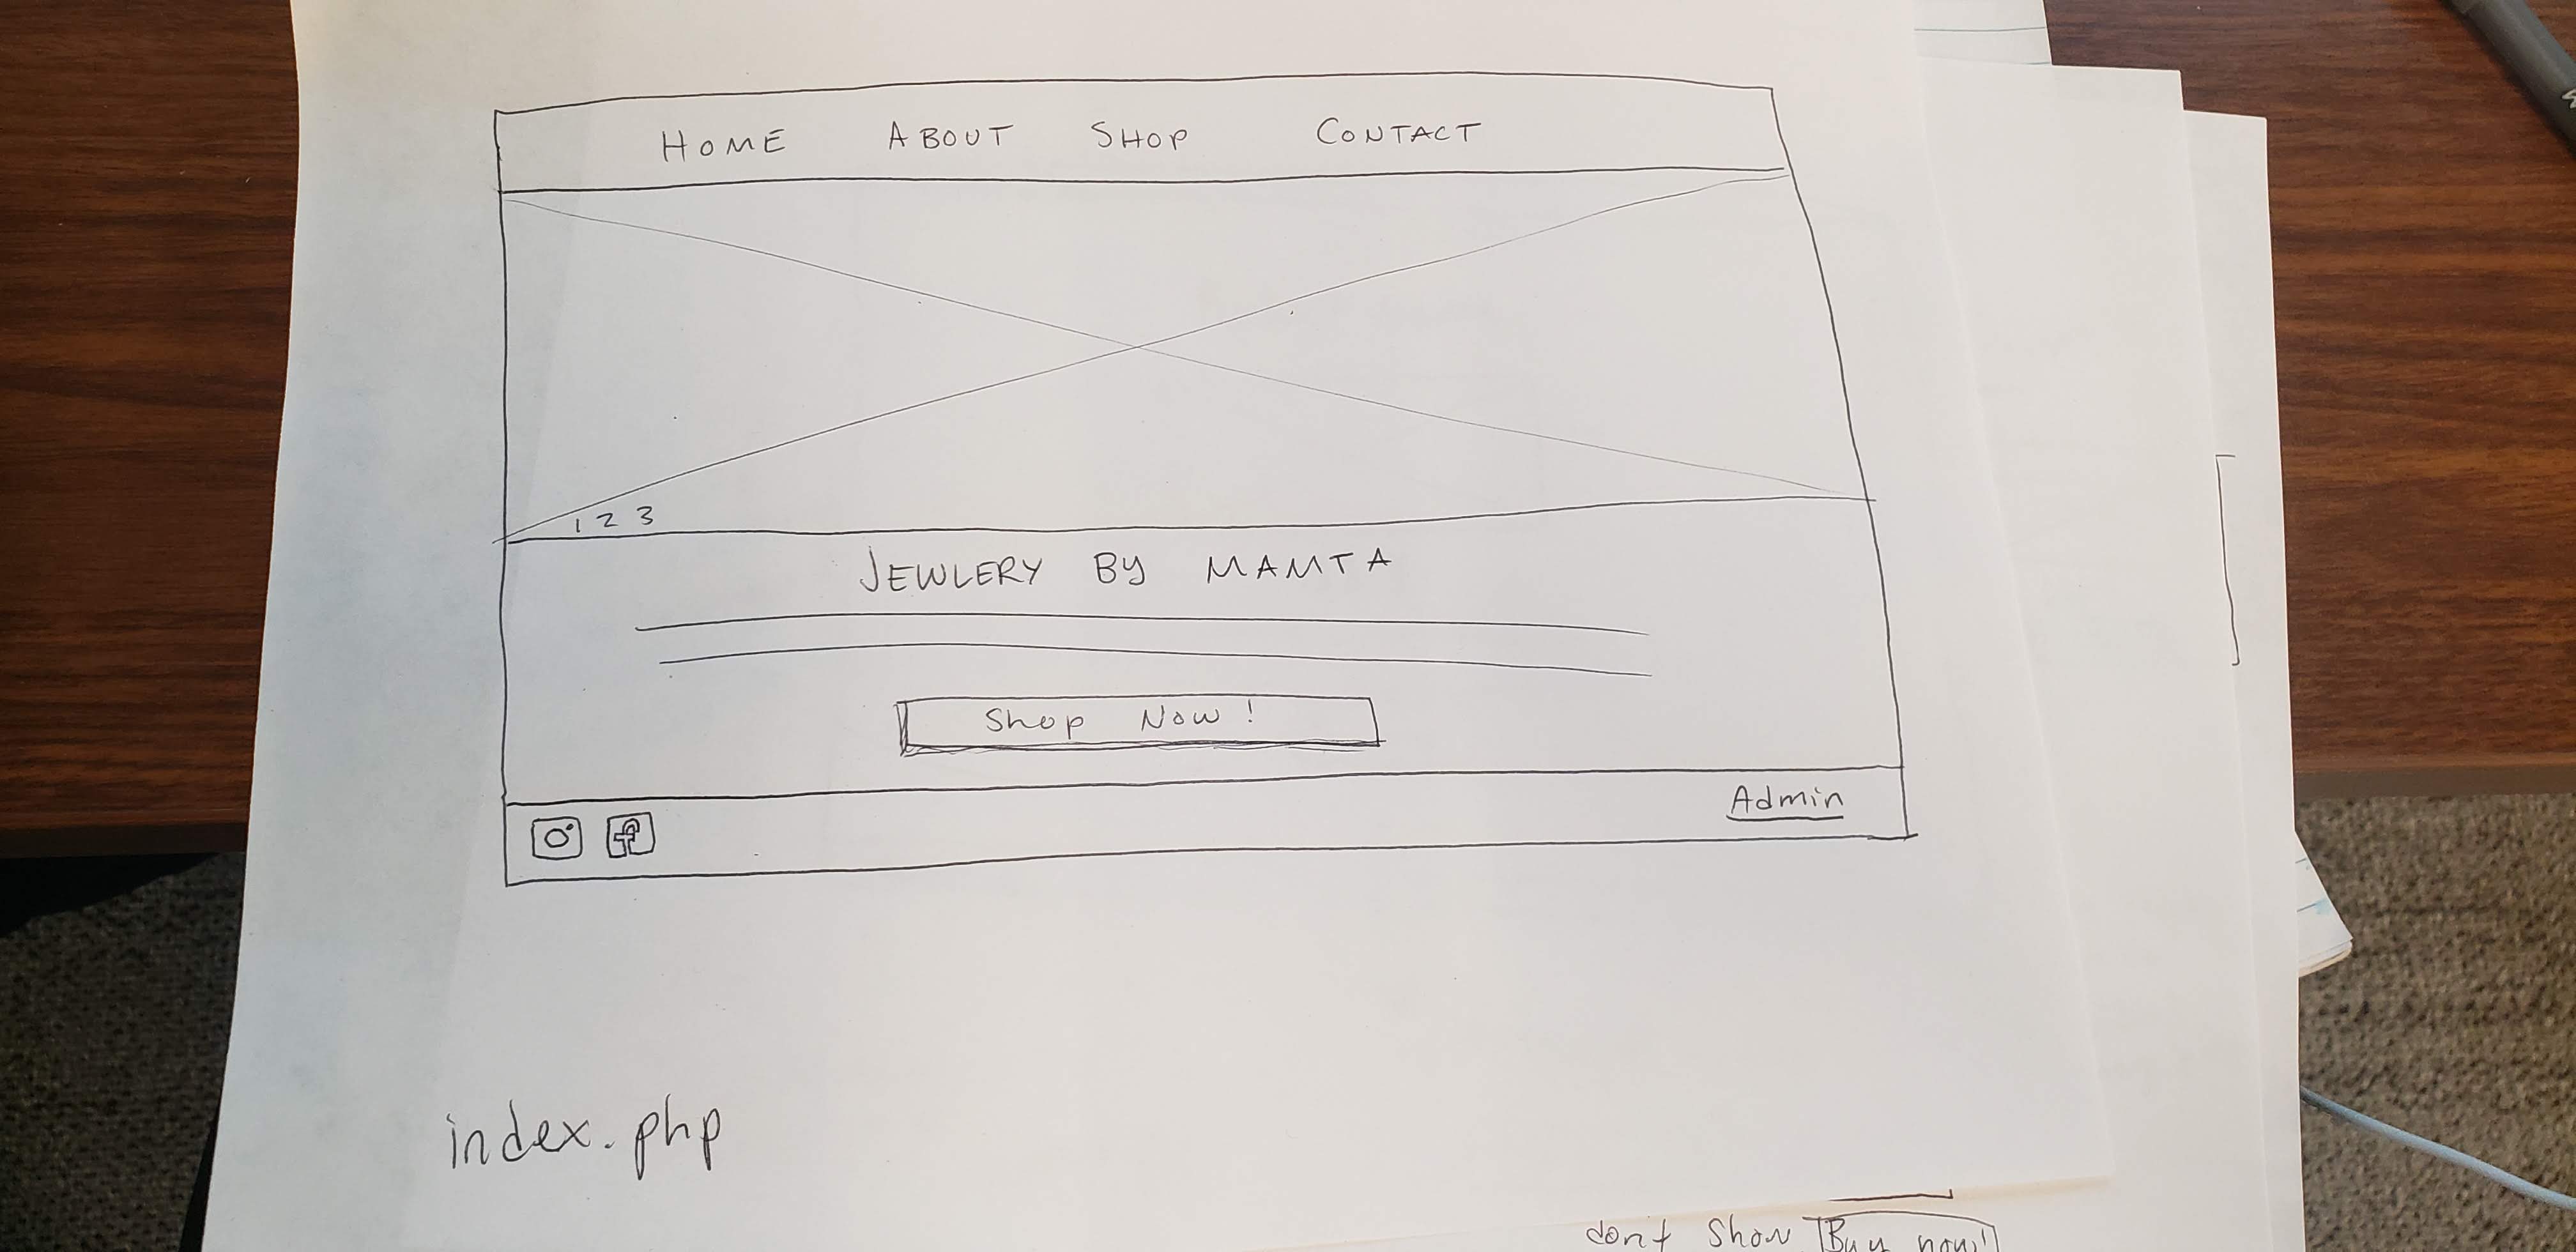 HOME ABOUT SHOP CONTACT
1 2 3
JEWLERY BY MAMTA
Shop Now!
Admin
index.php
don't show Buy now!